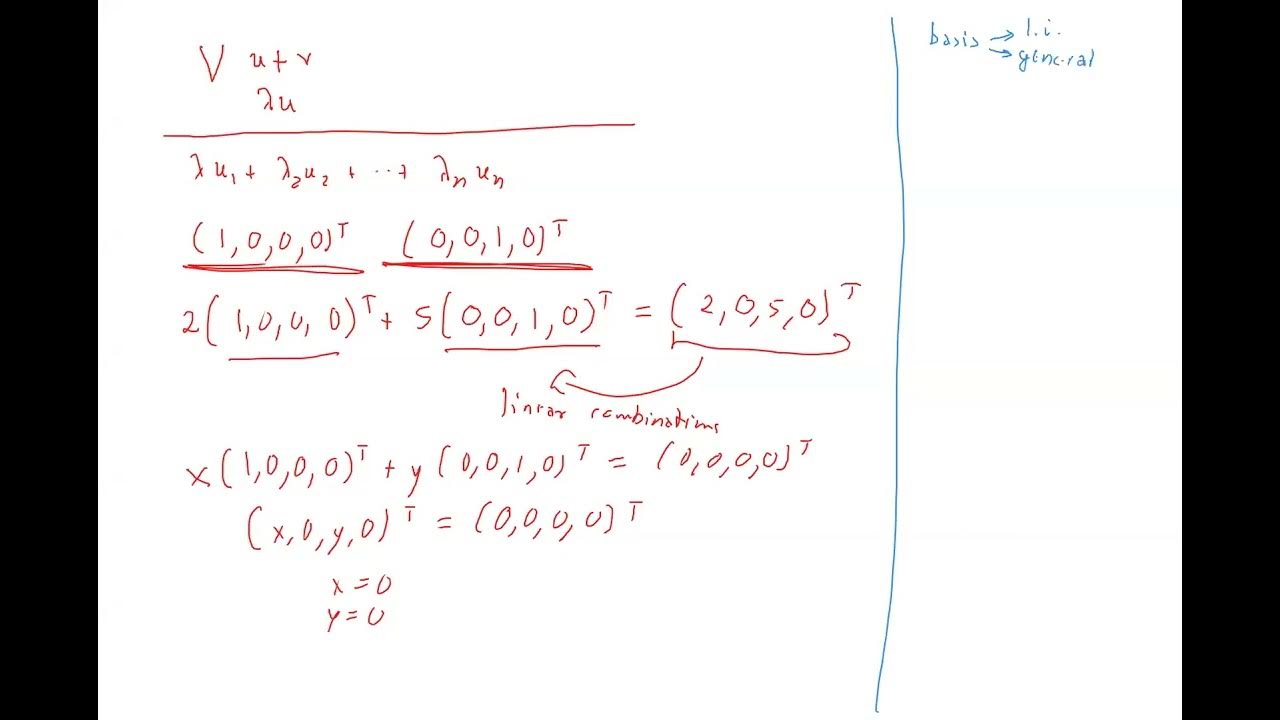 V u + v
λu
λu₁ + λ₂u₂ + ··· + λₙuₙ
(1,0,0,0)ᵀ (0,0,1,0)ᵀ
2(1,0,0,0)ᵀ + 5(0,0,1,0)ᵀ = (2,0,5,0)ᵀ
linear combinations
x(1,0,0,0)ᵀ + y(0,0,1,0)ᵀ = (0,0,0,0)ᵀ
(x,0,y,0)ᵀ = (0,0,0,0)ᵀ
x = 0
y = 0
basis → l.i.
→ general